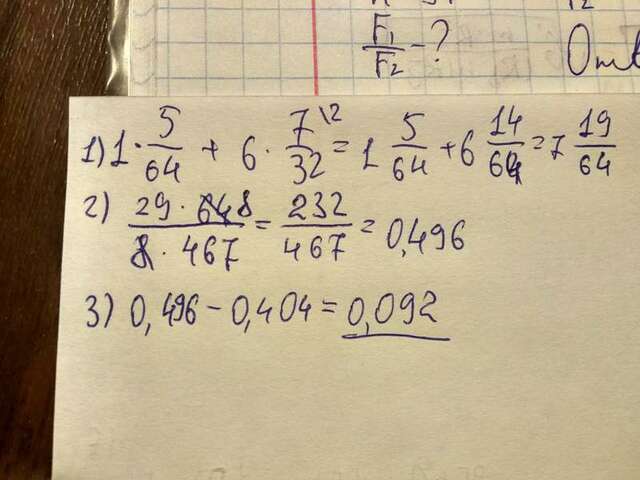 F₁/F₂ - ?
1) 1 · 5/64 + 6 · 7/32 \2 = 1 5/64 + 6 14/64 = 7 19/64
2) 29 · 64 8 / 8 · 467 = 232/467 = 0,496
3) 0,496 - 0,404 = 0,092